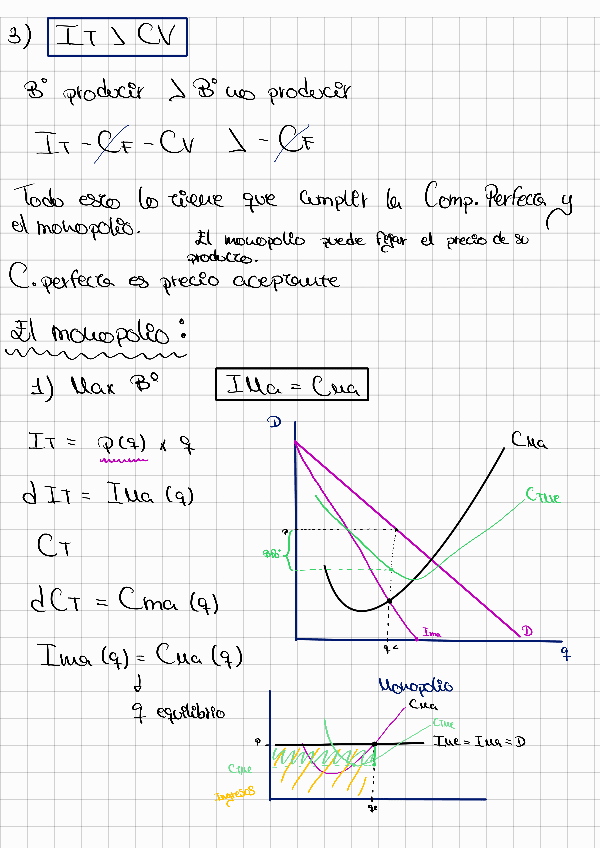 3) IT > CV
Bº producir > Bº no producir
IT - CF - CV > - CF
Todo esto lo tiene que cumplir la Comp. Perfecta y
el monopolio.
El monopolio puede fijar el precio de su
producto.
C. perfecta es precio aceptante
El monopolio:
1) Max Bº IMa = CMa
IT = p(q) x q
d IT = IMa (q)
CT
dCT = Cma (q)
Ima (q) = CMa (q)
q equilibrio
D
CMa
CTMe
P
Bº
Ima
D
qe
q
Monopolio
CMa
CTMe
P
IMe = IMa = D
CTMe
Ingresos
qe